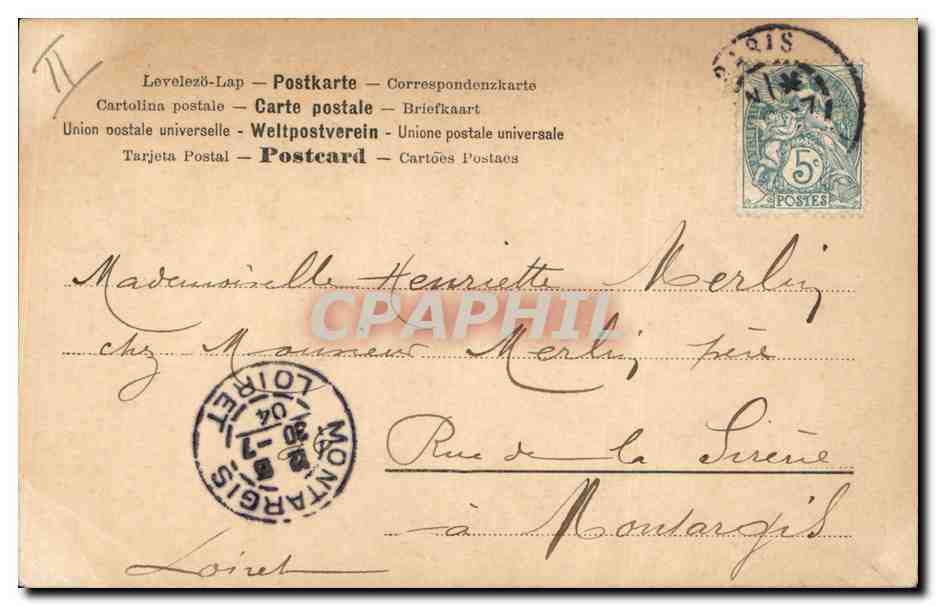 II
Levelezö-Lap — Postkarte — Correspondenzkarte
Cartolina postale — Carte postale — Briefkaart
Union postale universelle - Weltpostverein - Unione postale universale
Tarjeta Postal — Postcard — Cartões Postaes
PARIS
5c
POSTES
Mademoiselle Henriette Merlin
chez Monsieur Merlin père
Rue de la Sirène
à Montargis
Loiret
CPAPHIL
MONTARGIS
LOIRET
30 -7
04